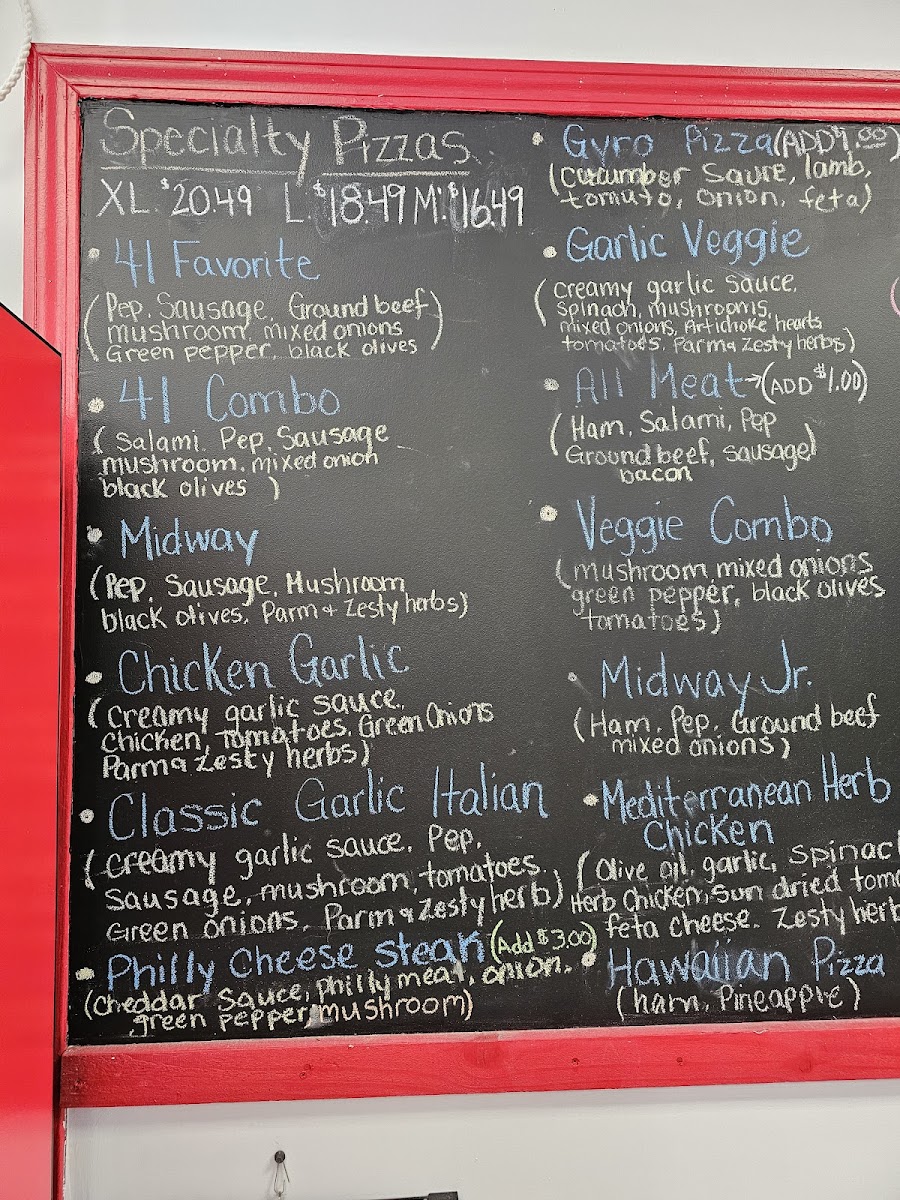 Specialty Pizzas
XL $20.49 L: $18.49 M: $16.49
• 41 Favorite
(Pep, Sausage, Ground beef
mushroom, mixed onions
Green pepper, black olives)
• 41 Combo
(Salami, Pep, Sausage
mushroom, mixed onion
black olives)
• Midway
(Pep, Sausage, Mushroom
black olives, Parm + Zesty herbs)
• Chicken Garlic
(Creamy garlic sauce,
Chicken, tomatoes, Green Onions
Parm & Zesty herbs)
• Classic Garlic Italian
(creamy garlic sauce, Pep,
Sausage, mushroom, tomatoes,
Green onions, Parm & Zesty herb)
• Philly Cheese steak (Add $3.00)
(cheddar sauce, philly meat, onion,
green pepper, mushroom)
• Gyro Pizza (ADD 1.00)
(cucumber sauce, lamb,
tomato, onion, feta)
• Garlic Veggie
(creamy garlic sauce,
spinach, mushrooms,
mixed onions, Artichoke hearts
tomatoes, Parm & Zesty herbs)
• All Meat → (ADD $1.00)
(Ham, Salami, Pep
Ground beef, sausage)
bacon
• Veggie Combo
(mushroom, mixed onions
green pepper, black olives
tomatoes)
• Midway Jr.
(Ham, Pep, Ground beef
mixed onions)
• Mediterranean Herb
Chicken
(Olive oil, garlic, spinac
Herb Chicken, Sun dried tom
feta cheese, Zesty herb
• Hawaiian Pizza
(ham, Pineapple)